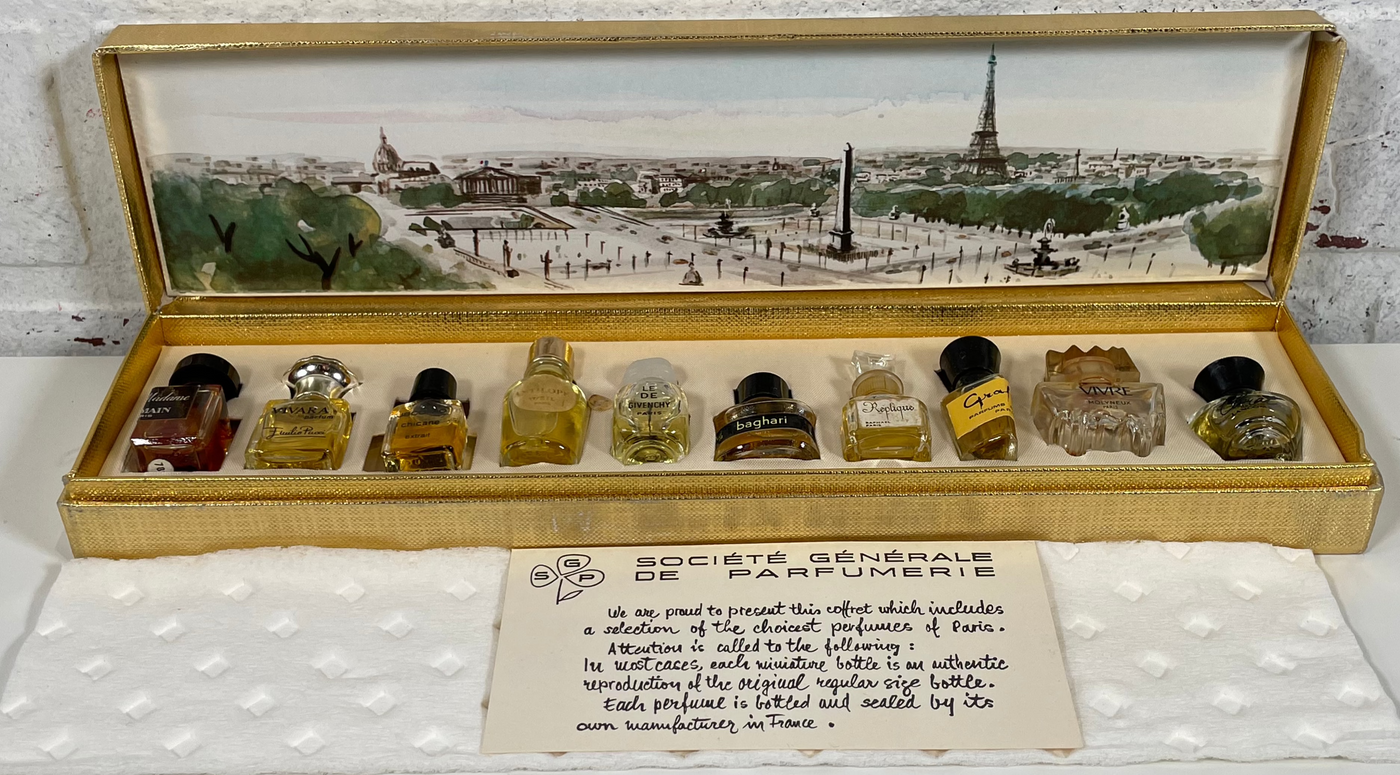 Madame
MAIN
VIVARA
parfum
Emilio Pucci
chicane
extrait
LE
DE
GIVENCHY
PARIS
baghari
Réplique
RAPHAEL
PARIS
Gra
PARFUMS
PAR
VIVRE
MOLYNEUX
PARIS
SGP
SOCIÉTÉ GÉNÉRALE
DE PARFUMERIE
We are proud to present this coffret which includes
a selection of the choicest perfumes of Paris.
Attention is called to the following :
In most cases, each miniature bottle is an authentic
reproduction of the original regular size bottle.
Each perfume is bottled and sealed by its
own manufacturer in France .